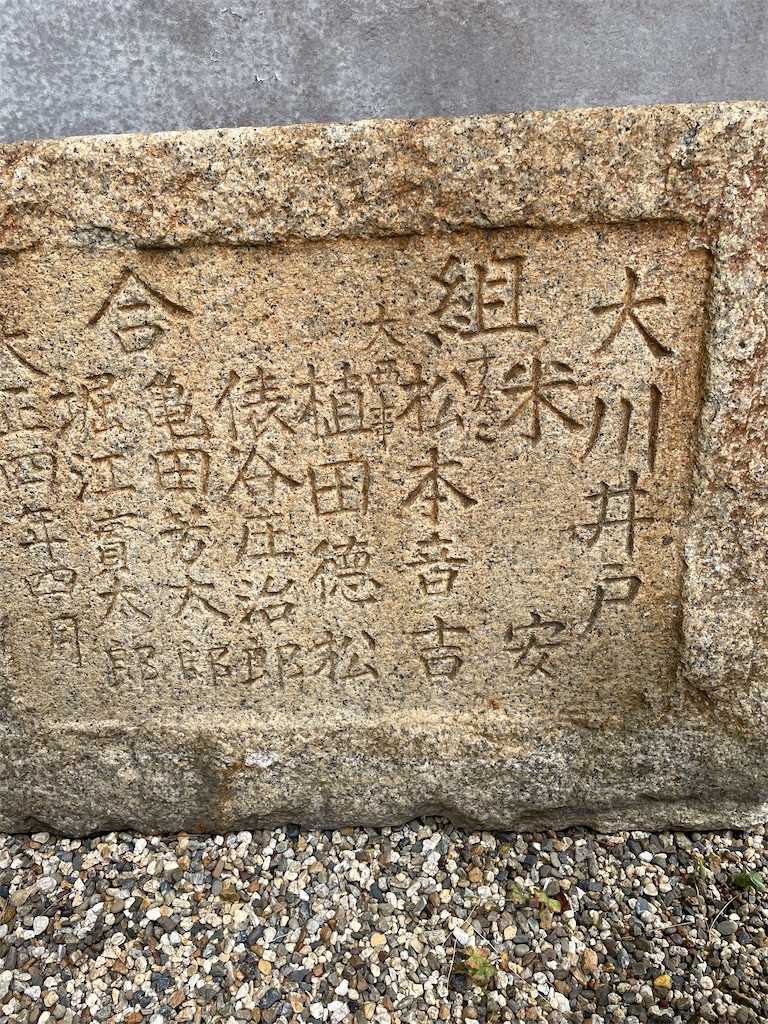 大川井戸
組合
米安
松本音吉
植田徳松
俵谷庄治郎
亀田芳太郎
堀江寅太郎
大正四年四月